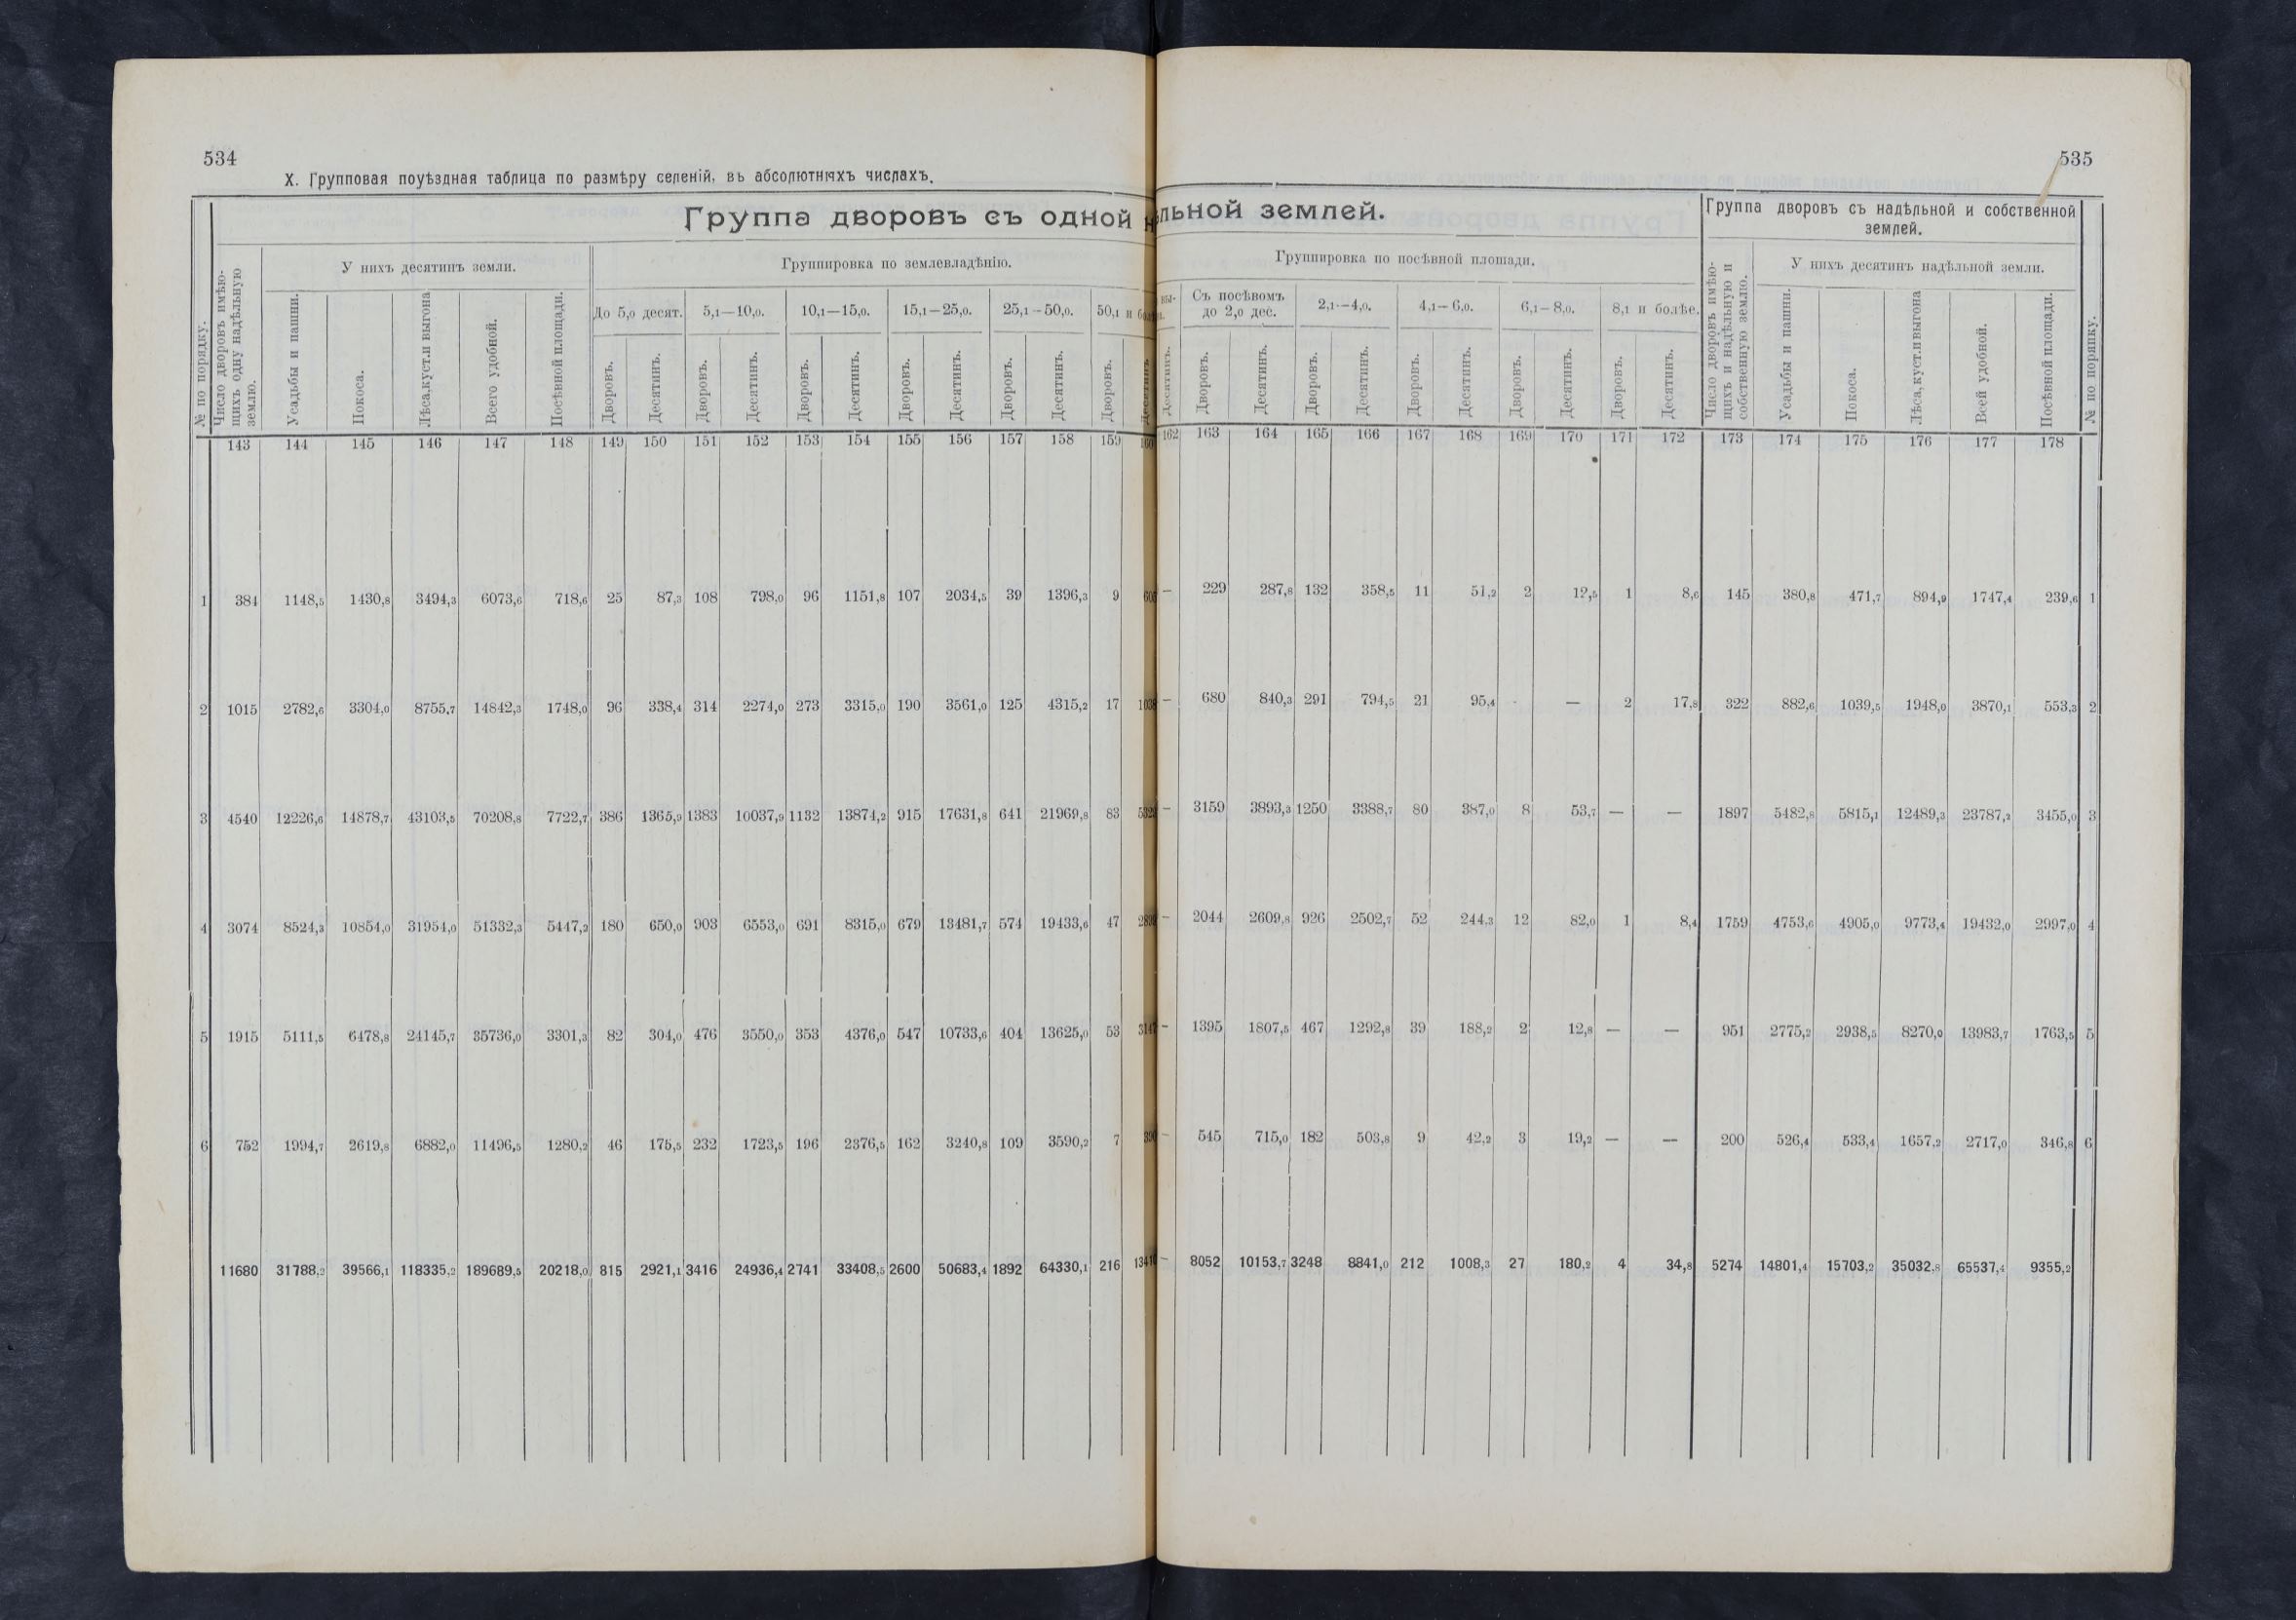 534
X. Групповая поуѣздная таблица по размѣру селеній, въ абсолютныхъ числахъ.
Группа дворовъ съ одной н
№ по порядку.
Число дворовъ имѣющихъ одну надѣльную землю.
У нихъ десятинъ земли.
Группировка по землевладѣнію.
Усадьбы и пашни. Покоса. Лѣса,куст.и выгона Всего удобной. Посѣвной площади.
До 5,0 десят. 5,1—10,0. 10,1—15,0. 15,1—25,0. 25,1—50,0. 50,1 и
Дворовъ. Десятинъ. Дворовъ. Десятинъ. Дворовъ. Десятинъ. Дворовъ. Десятинъ. Дворовъ. Десятинъ. Дворовъ.
143 144 145 146 147 148 149 150 151 152 153 154 155 156 157 158 159
1 384 1148,5 1430,8 3494,3 6073,6 718,6 25 87,3 108 798,0 96 1151,8 107 2034,5 39 1396,3 9
2 1015 2782,6 3304,0 8755,7 14842,3 1748,0 96 338,4 314 2274,0 273 3315,0 190 3561,0 125 4315,2 17
3 4540 12226,6 14878,7 43103,5 70208,8 7722,7 386 1365,9 1383 10037,9 1132 13874,2 915 17631,8 641 21969,8 83
4 3074 8524,3 10854,0 31954,0 51332,3 5447,2 180 650,0 903 6553,0 691 8315,0 679 13481,7 574 19433,6 47
5 1915 5111,5 6478,8 24145,7 35736,0 3301,3 82 304,0 476 3550,0 353 4376,0 547 10733,6 404 13625,0 53
6 752 1994,7 2619,8 6882,0 11496,5 1280,2 46 175,5 232 1723,5 196 2376,5 162 3240,8 109 3590,2 7
11680 31788,2 39566,1 118335,2 189689,5 20218,0 815 2921,1 3416 24936,4 2741 33408,5 2600 50683,4 1892 64330,1 216
535
льной землей.
Группа дворовъ съ надѣльной и собственной
землей.
Группировка по посѣвной площади.
Число дворовъ имѣющихъ и надѣльную и собственную землю.
У нихъ десятинъ надѣльной земли.
№ по порядку.
Съ посѣвомъ до 2,0 дес. 2,1—4,0. 4,1—6,0. 6,1—8,0. 8,1 и болѣе.
Десятинъ. Дворовъ. Десятинъ. Дворовъ. Десятинъ. Дворовъ. Десятинъ. Дворовъ. Десятинъ. Дворовъ. Десятинъ. Усадьбы и пашни. Покоса. Лѣса,куст.и выгона Всей удобной. Посѣвной площади.
162 163 164 165 166 167 168 169 170 171 172 173 174 175 176 177 178
— 229 287,8 132 358,5 11 51,2 2 12,5 1 8,6 145 380,8 471,7 894,9 1747,4 239,6 1
— 680 840,3 291 794,5 21 95,4 - — 2 17,8 322 882,6 1039,5 1948,0 3870,1 553,3 2
— 3159 3893,3 1250 3388,7 80 387,0 8 53,7 — — 1897 5482,8 5815,1 12489,3 23787,2 3455,0 3
— 2044 2609,8 926 2502,7 52 244,3 12 82,0 1 8,4 1759 4753,6 4905,0 9773,4 19432,0 2997,0 4
— 1395 1807,5 467 1292,8 39 188,2 2 12,8 — — 951 2775,2 2938,5 8270,0 13983,7 1763,5 5
— 545 715,0 182 503,8 9 42,2 3 19,2 — — 200 526,4 533,4 1657,2 2717,0 346,8 6
— 8052 10153,7 3248 8841,0 212 1008,3 27 180,2 4 34,8 5274 14801,4 15703,2 35032,8 65537,4 9355,2